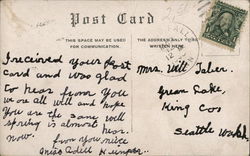 Post Card
THIS SPACE MAY BE USED
FOR COMMUNICATION.
THE ADDRESS ONLY TO BE
WRITTEN HERE.
I received your Post
Card and was glad
to hear from you
we are all well and hope
you are the same well
spring is almost hear
now.
from your niece
Miss Odill
Mrs. Will Taber.
Green Lake,
King Co.
Seattle Wash